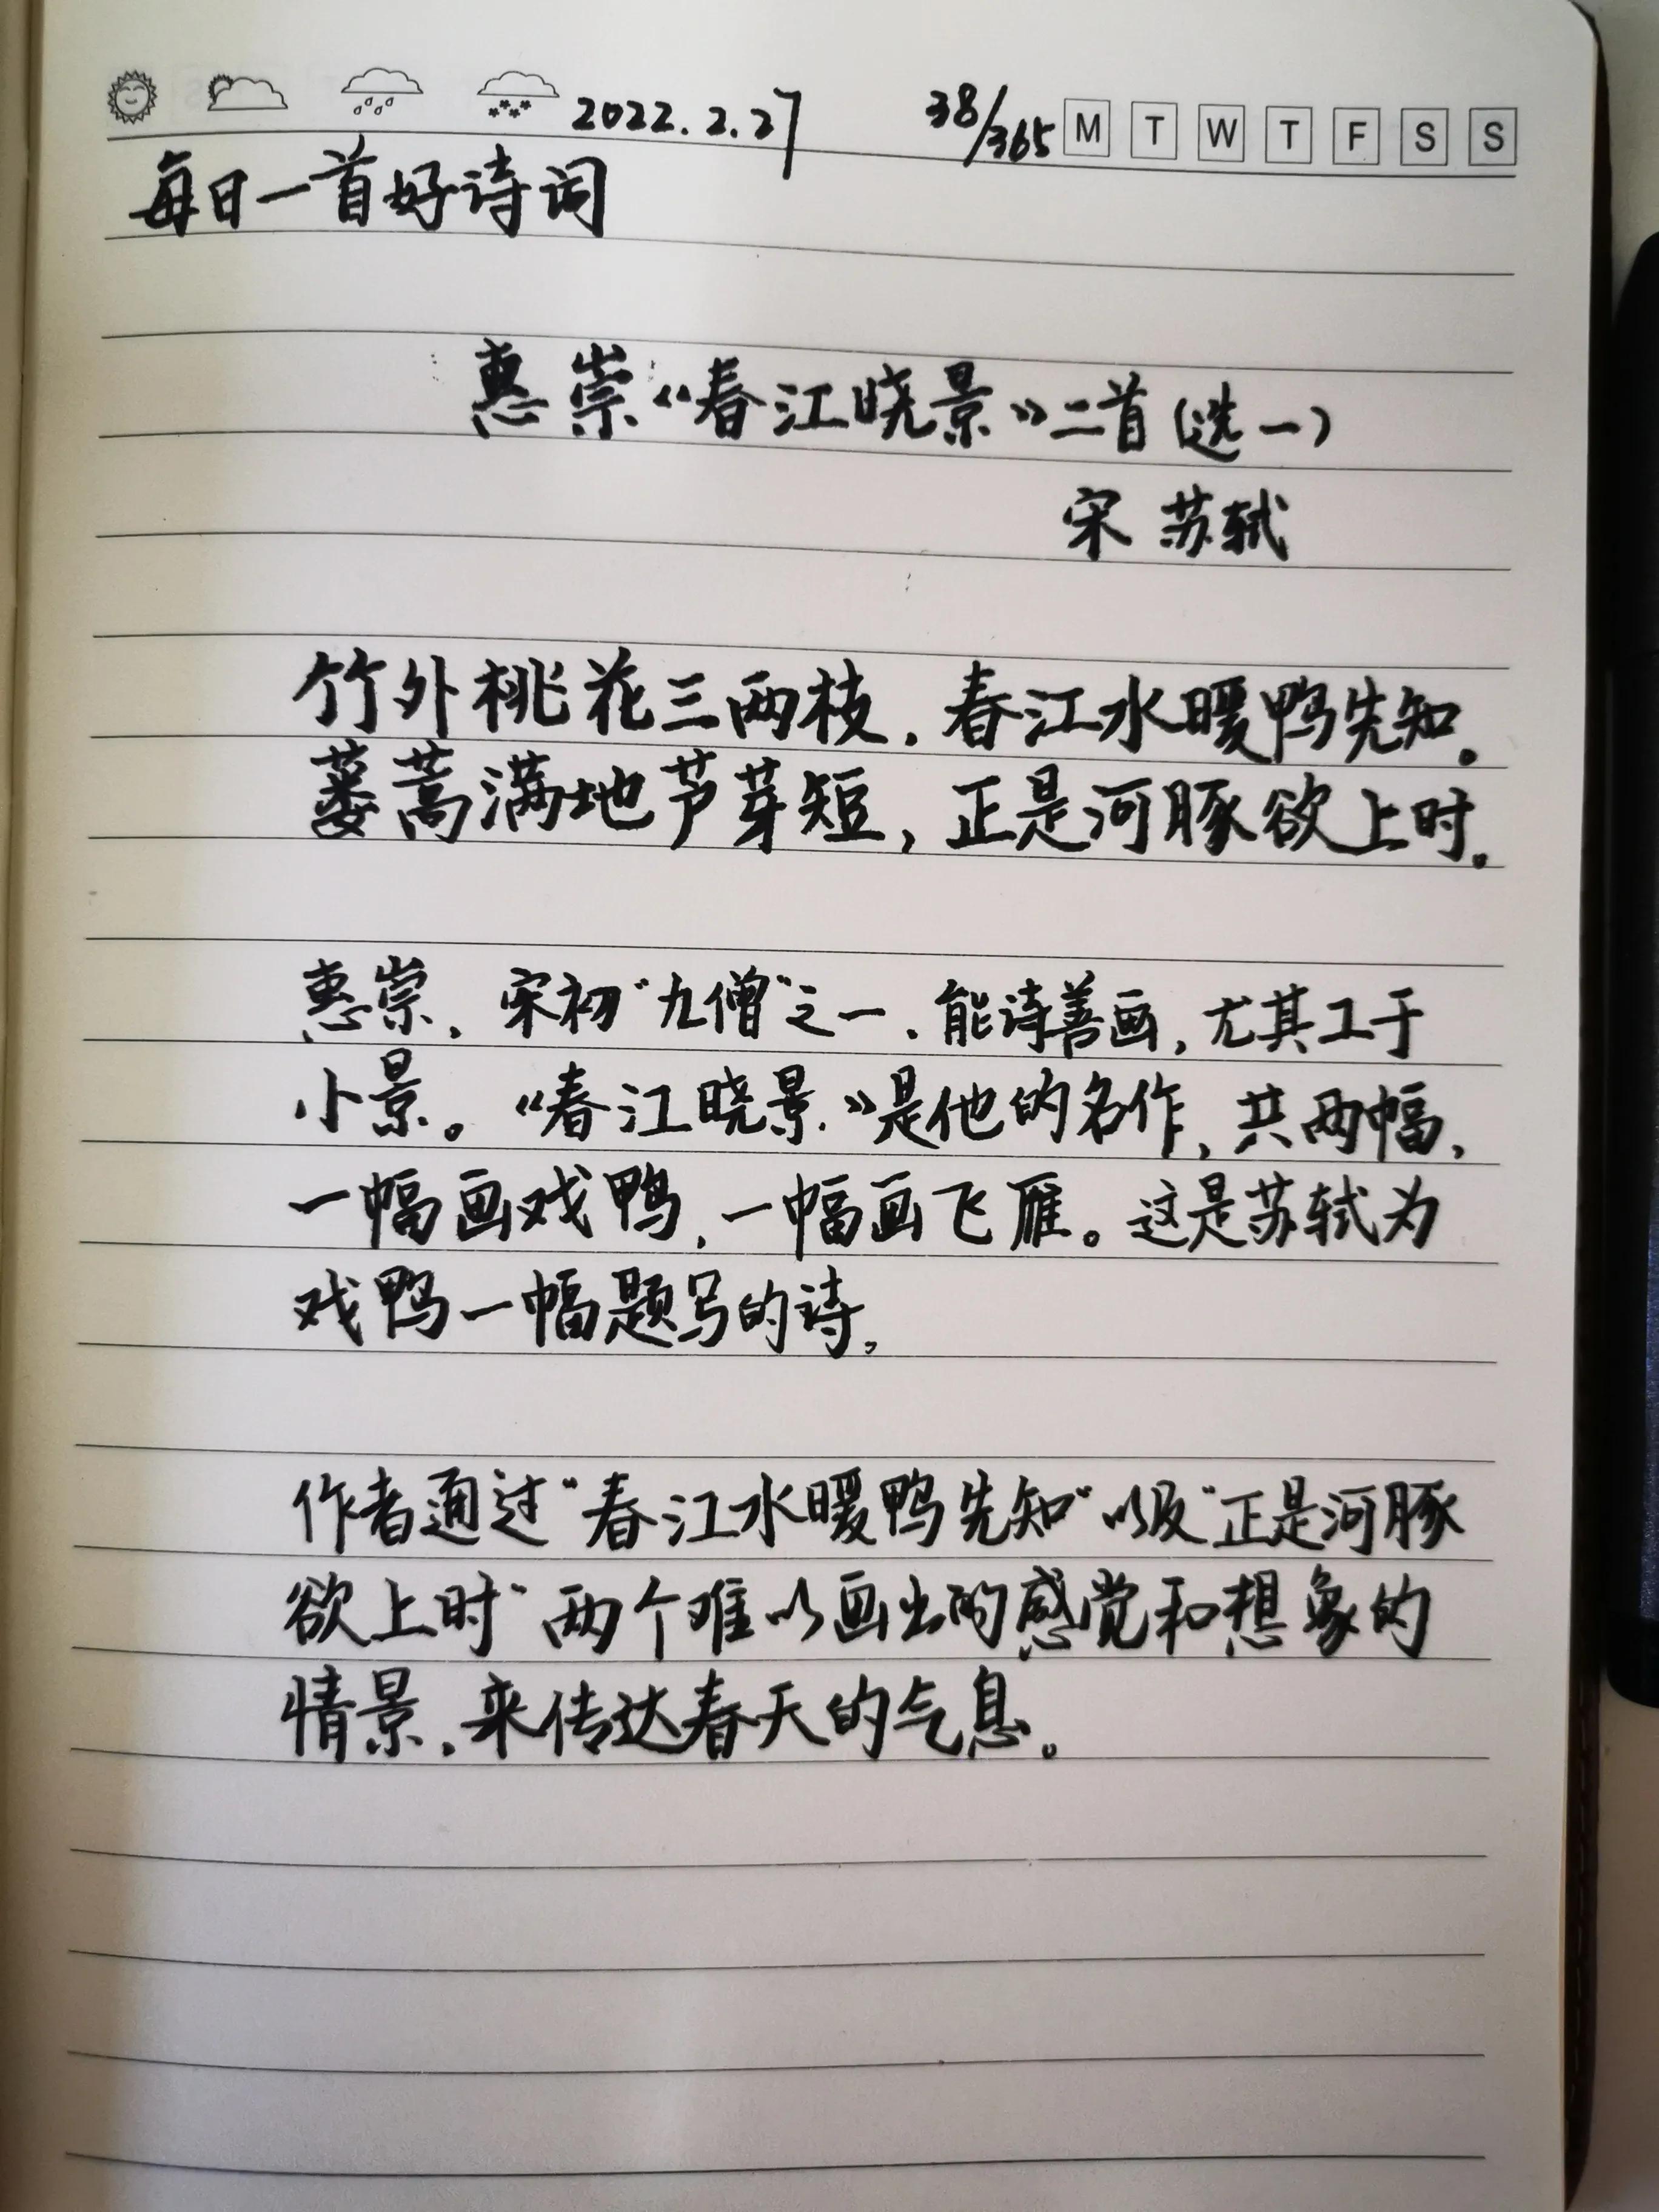 2022.2.27 38/365 M T W T F S S
每日一首好诗词
惠崇《春江晓景》二首(选一)
宋 苏轼
竹外桃花三两枝,春江水暖鸭先知。
蒌蒿满地芦芽短,正是河豚欲上时。
惠崇,宋初“九僧”之一,能诗善画,尤其工于
小景。《春江晓景》是他的名作,共两幅,
一幅画戏鸭,一幅画飞雁。这是苏轼为
戏鸭一幅题写的诗。
作者通过“春江水暖鸭先知”以及“正是河豚
欲上时”两个难以画出的感觉和想象的
情景,来传达春天的气息。